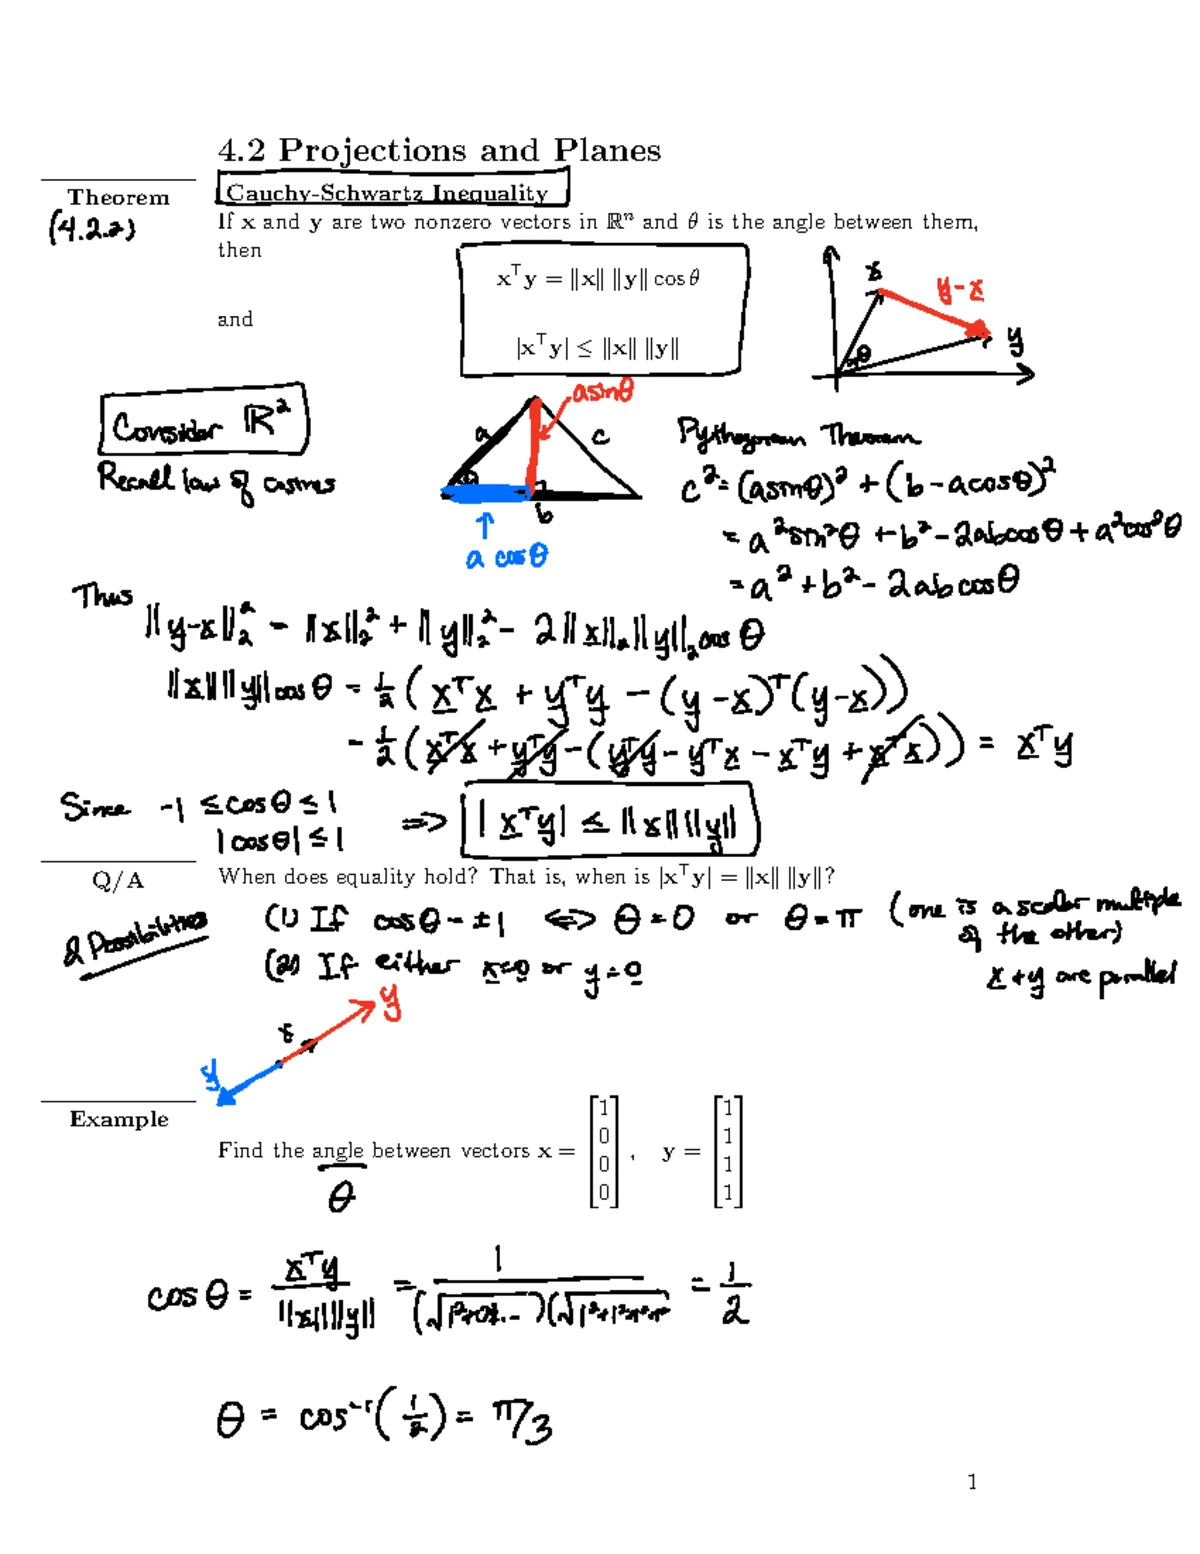 4.2 Projections and Planes
Theorem
(4.2.2)
Cauchy-Schwartz Inequality
If x and y are two nonzero vectors in ℝⁿ and θ is the angle between them,
then
xᵀy = ‖x‖ ‖y‖ cos θ
and
|xᵀy| ≤ ‖x‖ ‖y‖
x
y-x
y
θ
Consider ℝ²
Recall law of cosines
a
asinθ
c
θ
b
a cosθ
Pythagorean Theorem
c² = (asinθ)² + (b - acosθ)²
= a²sin²θ + b² - 2abcosθ + a²cos²θ
= a² + b² - 2abcosθ
Thus
‖y-x‖₂² = ‖x‖₂² + ‖y‖₂² - 2‖x‖₂‖y‖₂cosθ
‖x‖‖y‖cosθ = 1/2 (xᵀx + yᵀy - (y-x)ᵀ(y-x))
= 1/2 (xᵀx + yᵀy - (yᵀy - yᵀx - xᵀy + xᵀx)) = xᵀy
Since -1 ≤ cosθ ≤ 1
|cosθ| ≤ 1
=> |xᵀy| ≤ ‖x‖‖y‖
Q/A
When does equality hold? That is, when is |xᵀy| = ‖x‖ ‖y‖?
2 Possibilities
(1) If cosθ = ±1 <=> θ = 0 or θ = π (one is a scalar multiple
of the other)
(2) If either x=0 or y=0
x + y are parallel
y
x
y
Example
Find the angle between vectors x = [1 0 0 0] , y = [1 1 1 1]
θ
cosθ = xᵀy / ‖x‖‖y‖ = 1 / (√1²+0²+..)(√1²+1²+1²+1²) = 1/2
θ = cos⁻¹(1/2) = π/3
1